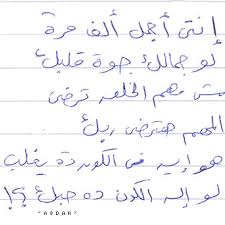 إنتى أجمل ألف مرة
لو جمالك جوة قلبك
مش مهم الخلقه ترضى
المهم هترضى ربك
هو إيه فى الكون ده يغلب
لو إله الكون ده حبك ؟!